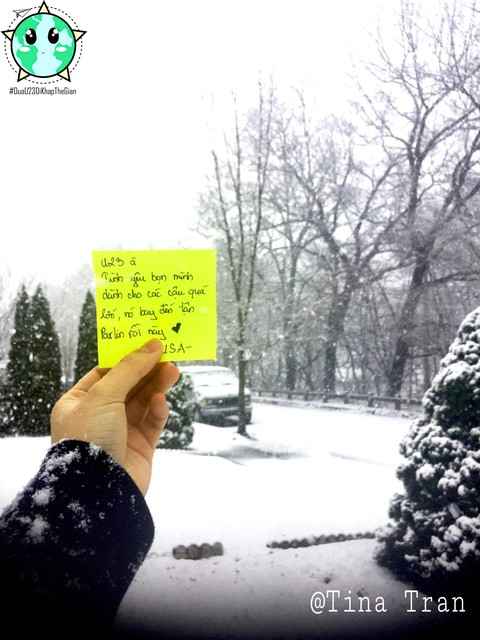 #DuaU23DiKhapTheGian
U23 à
Tình yêu bọn mình
dành cho các cậu quá
lớn, nó bay đến tận
Parlin rồi này ♥
USA-
@Tina Tran